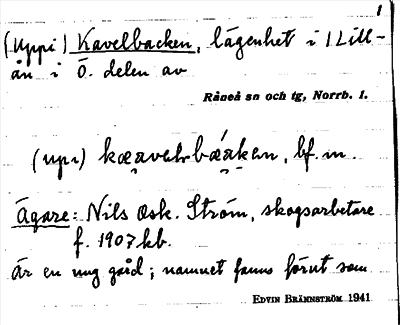 1
(Uppi) Kavelbacken, lägenhet i Lill-
ån i Ö. delen av
Råneå sn och tg, Norrb. l.
(upi) kæavelbǽaken, bf. m.
Ägare: Nils Osk. Ström, skogsarbetare
f. 1907 hb.
Är en ung gård; namnet fanns förut som
EDVIN BRÄNNSTRÖM 1941